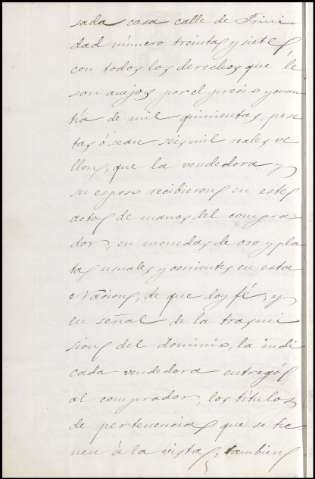 sada casa calle de Trini
dad número treinta y siete,
con todos los derechos que le
son anejos, por el precio y cuan
tia de mil quinientas pese
tas ó sean seis mil reales ve
llon, que la vendedora y
su esposo recibieron en este
acto de manos del compra
dor, en monedas de oro y pla
ta usuales y corrientes en esta
Nacion, de que doy fé, y
en señal de la trasmi
sion del dominio, la indi
cada vendedora entregó
al comprador, los titulos
de pertenencia que se tie
nen á la vista, tambien